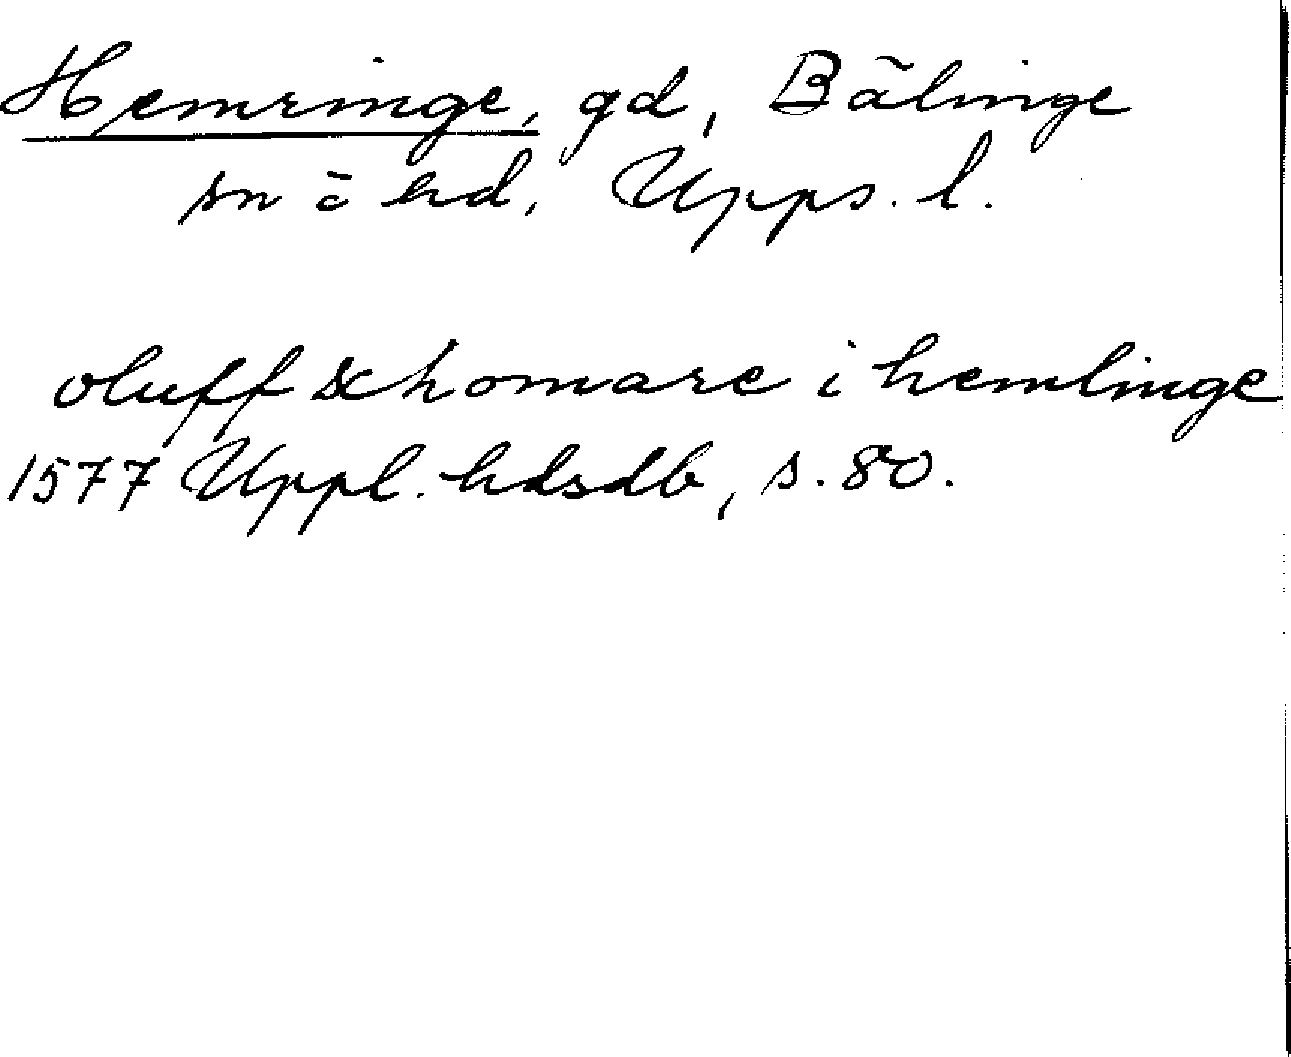 Hemringe, gd, Bälinge
sn ō hd, Upps. l.
oluff schomare i hemlinge
1577 Uppl. hdsdb, s. 80.